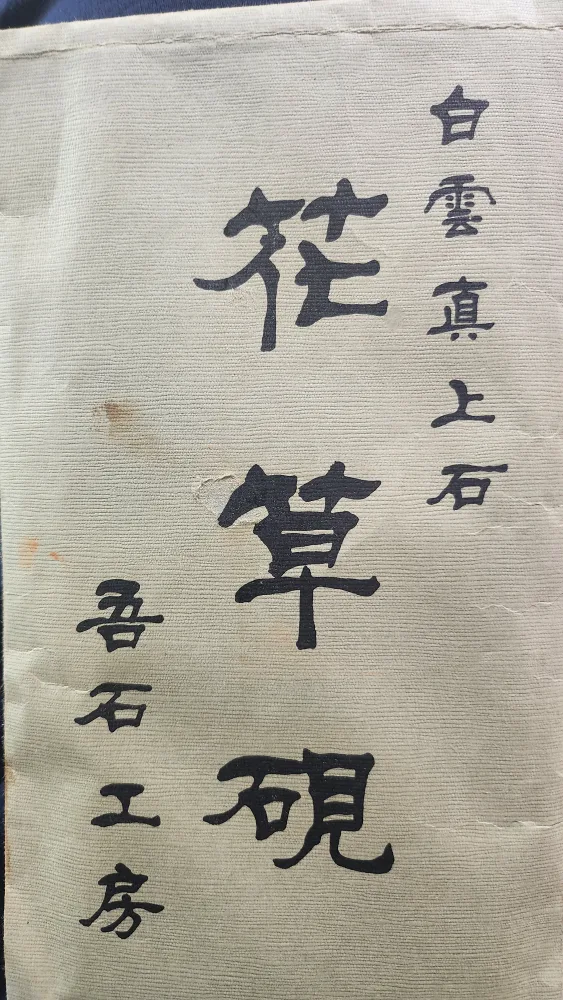 白雲真上石
花草硯
吾石工房